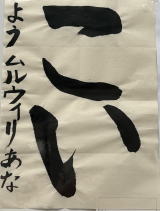 こい
よう ムルウィリあな